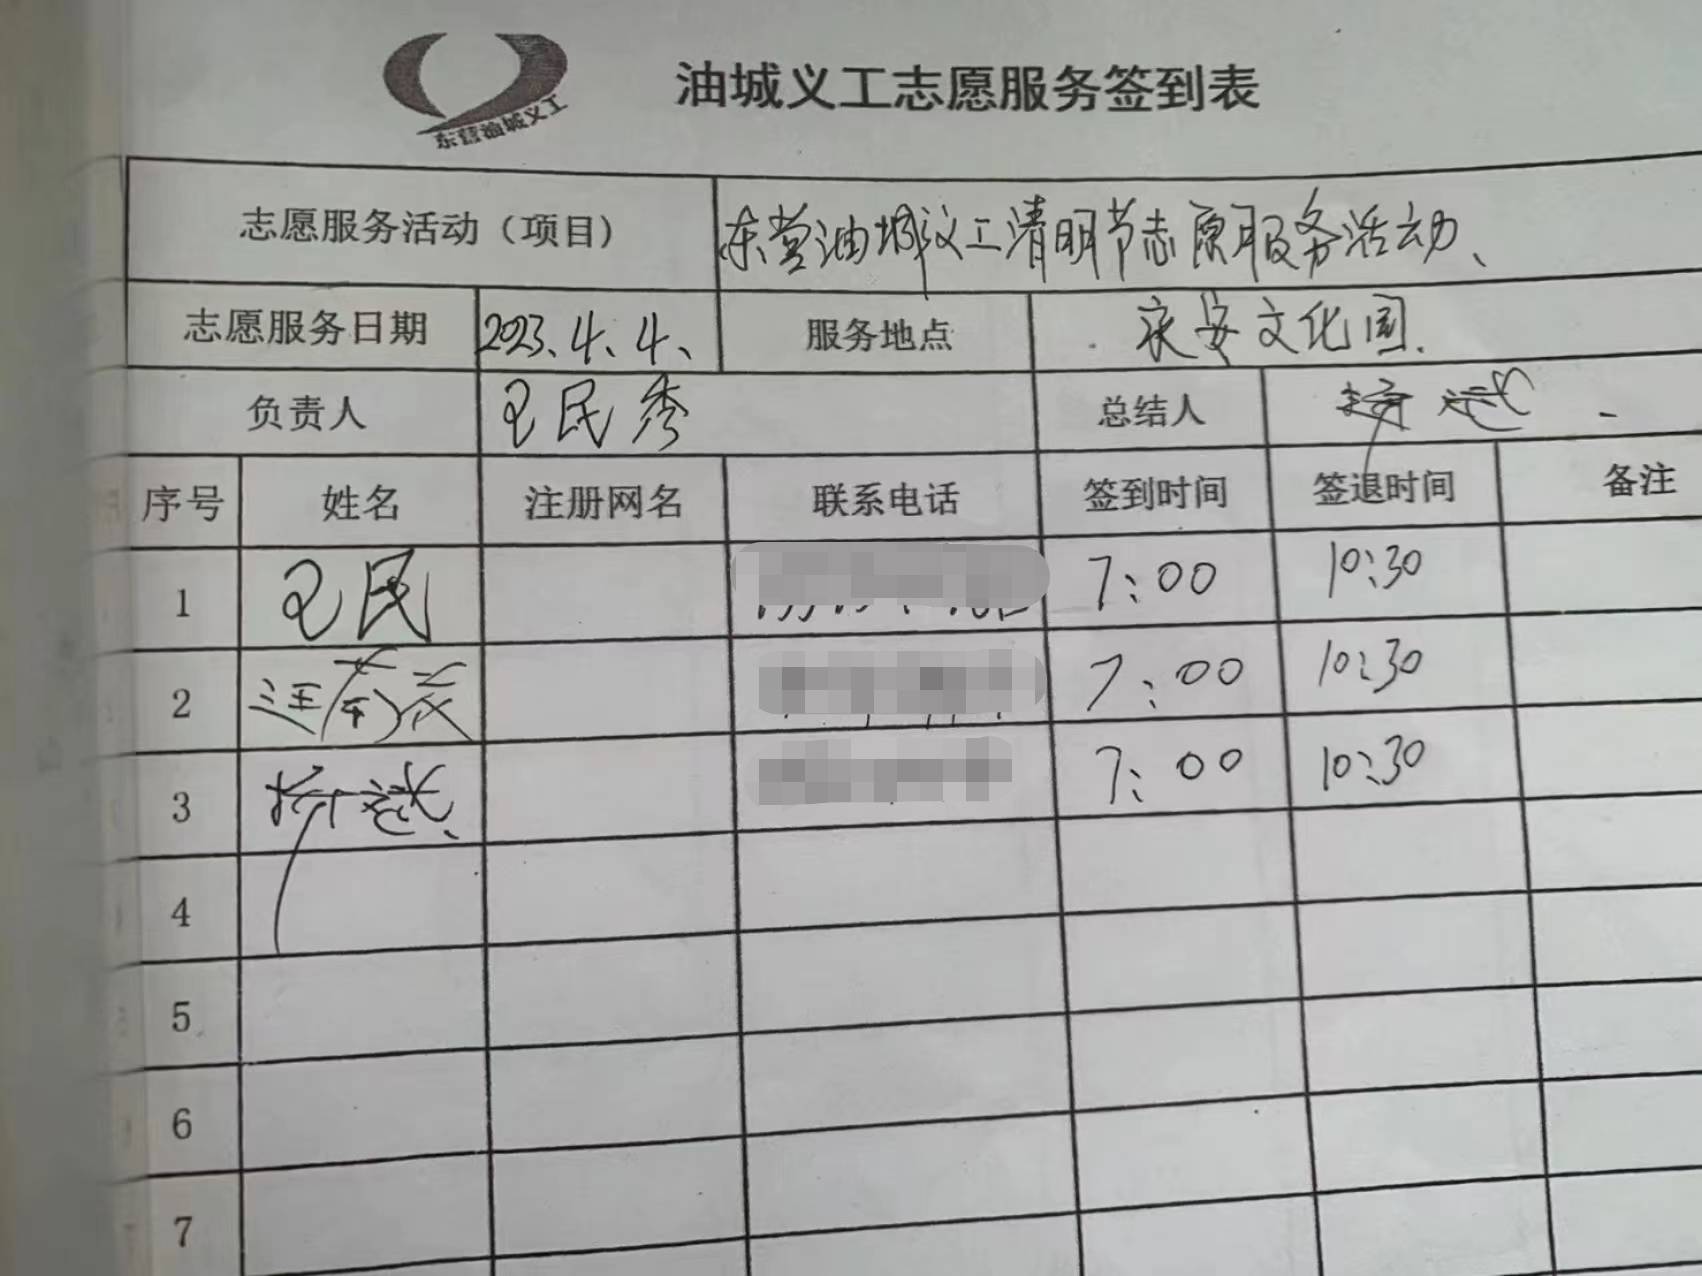 东营油城义工
油城义工志愿服务签到表
志愿服务活动（项目） 东营油城义工清明节志愿服务活动、
志愿服务日期 2023.4.4、 服务地点 永安文化园.
负责人 王民秀 总结人
序号 姓名 注册网名 联系电话 签到时间 签退时间 备注
1 王民 7:00 10:30
2 7:00 10:30
3 7:00 10:30
4
5
6
7